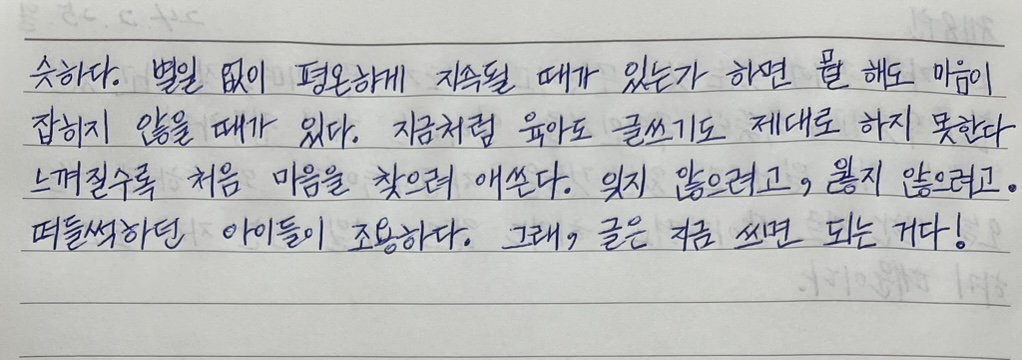 슷하다. 별일 없이 평온하게 지속될 때가 있는가 하면 뭘 해도 마음이
잡히지 않을 때가 있다. 지금처럼 육아도 글쓰기도 제대로 하지 못한다
느껴질수록 처음 마음을 찾으려 애쓴다. 잊지 않으려고, 잃지 않으려고.
떠들썩하던 아이들이 조용하다. 그래, 글은 지금 쓰면 되는 거다!